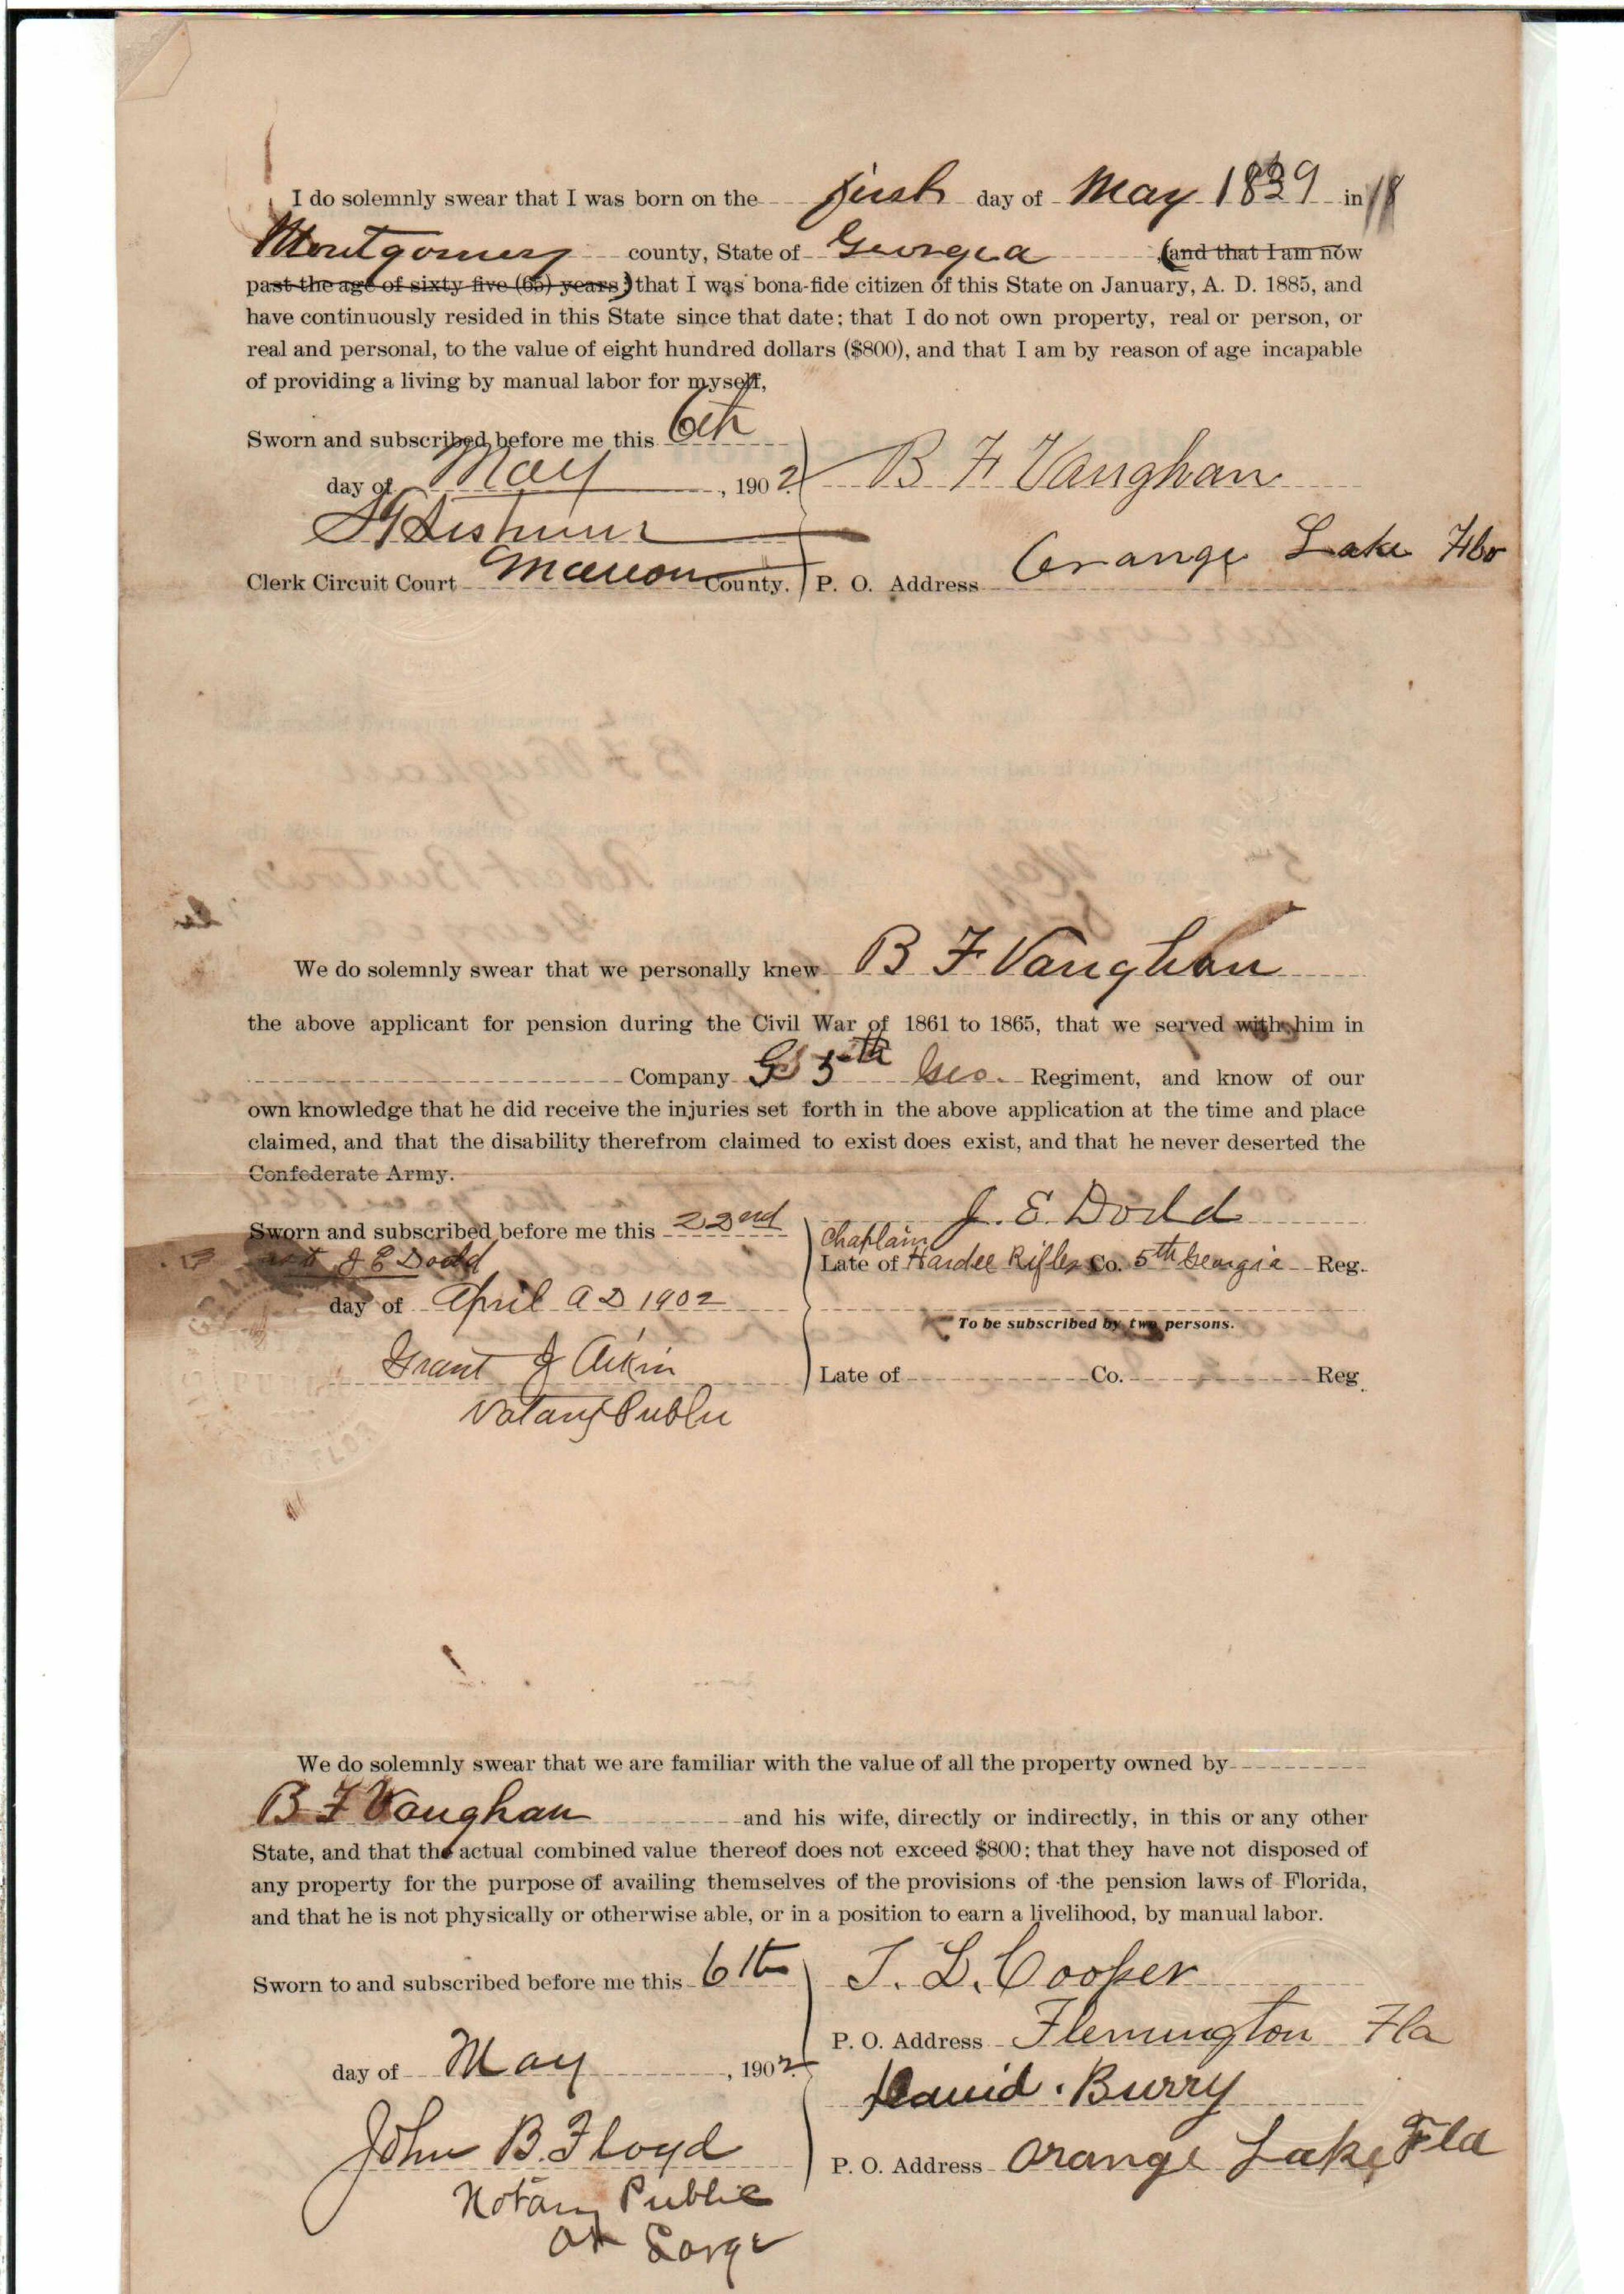 I do solemnly swear that I was born on the first day of May 1839 in 18
Montgomery county, State of Georgia (and that I am now
past the age of sixty-five (65) years;) that I was bona-fide citizen of this State on January, A. D. 1885, and
have continuously resided in this State since that date; that I do not own property, real or person, or
real and personal, to the value of eight hundred dollars ($800), and that I am by reason of age incapable
of providing a living by manual labor for myself,
Sworn and subscribed before me this 6th
day of May, 1902. B F Vaughan
Clerk Circuit Court Marion County. P. O. Address Orange Lake Fla
We do solemnly swear that we personally knew B F Vaughan
the above applicant for pension during the Civil War of 1861 to 1865, that we served with him in
Company G 5th Geo. Regiment, and know of our
own knowledge that he did receive the injuries set forth in the above application at the time and place
claimed, and that the disability therefrom claimed to exist does exist, and that he never deserted the
Confederate Army.
Sworn and subscribed before me this 22nd J. E. Dodd
J E Dodd
Chaplain
Late of Hardee Rifles Co. 5th Georgia Reg.
day of April A D 1902
To be subscribed by two persons.
Grant J Aikin Late of Co. Reg.
Notary Public
We do solemnly swear that we are familiar with the value of all the property owned by
B F Vaughan and his wife, directly or indirectly, in this or any other
State, and that the actual combined value thereof does not exceed $800; that they have not disposed of
any property for the purpose of availing themselves of the provisions of the pension laws of Florida,
and that he is not physically or otherwise able, or in a position to earn a livelihood, by manual labor.
Sworn to and subscribed before me this 6th J. L. Cooper
P. O. Address Flemington Fla
day of May, 1902.
David Burry
John B. Floyd P. O. Address Orange Lake, Fla
Notary Public
at Large